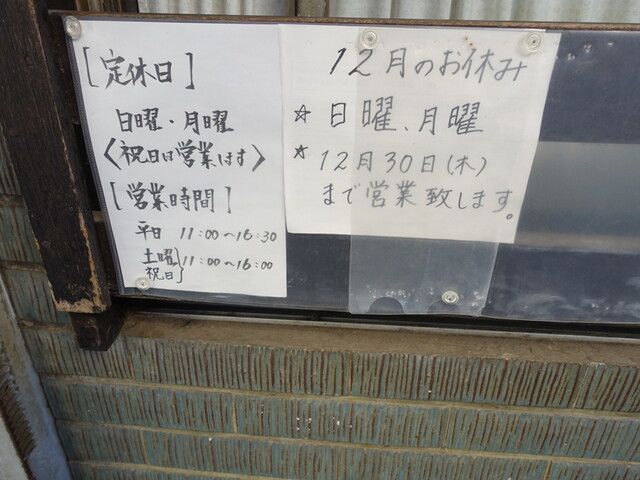 [定休日]
日曜・月曜
〈祝日は営業します〉
[営業時間]
平日 11:00～16:30
土曜
祝日} 11:00～16:00
12月のお休み
☆ 日曜、月曜
☆ 12月30日(木)
まで営業致します。